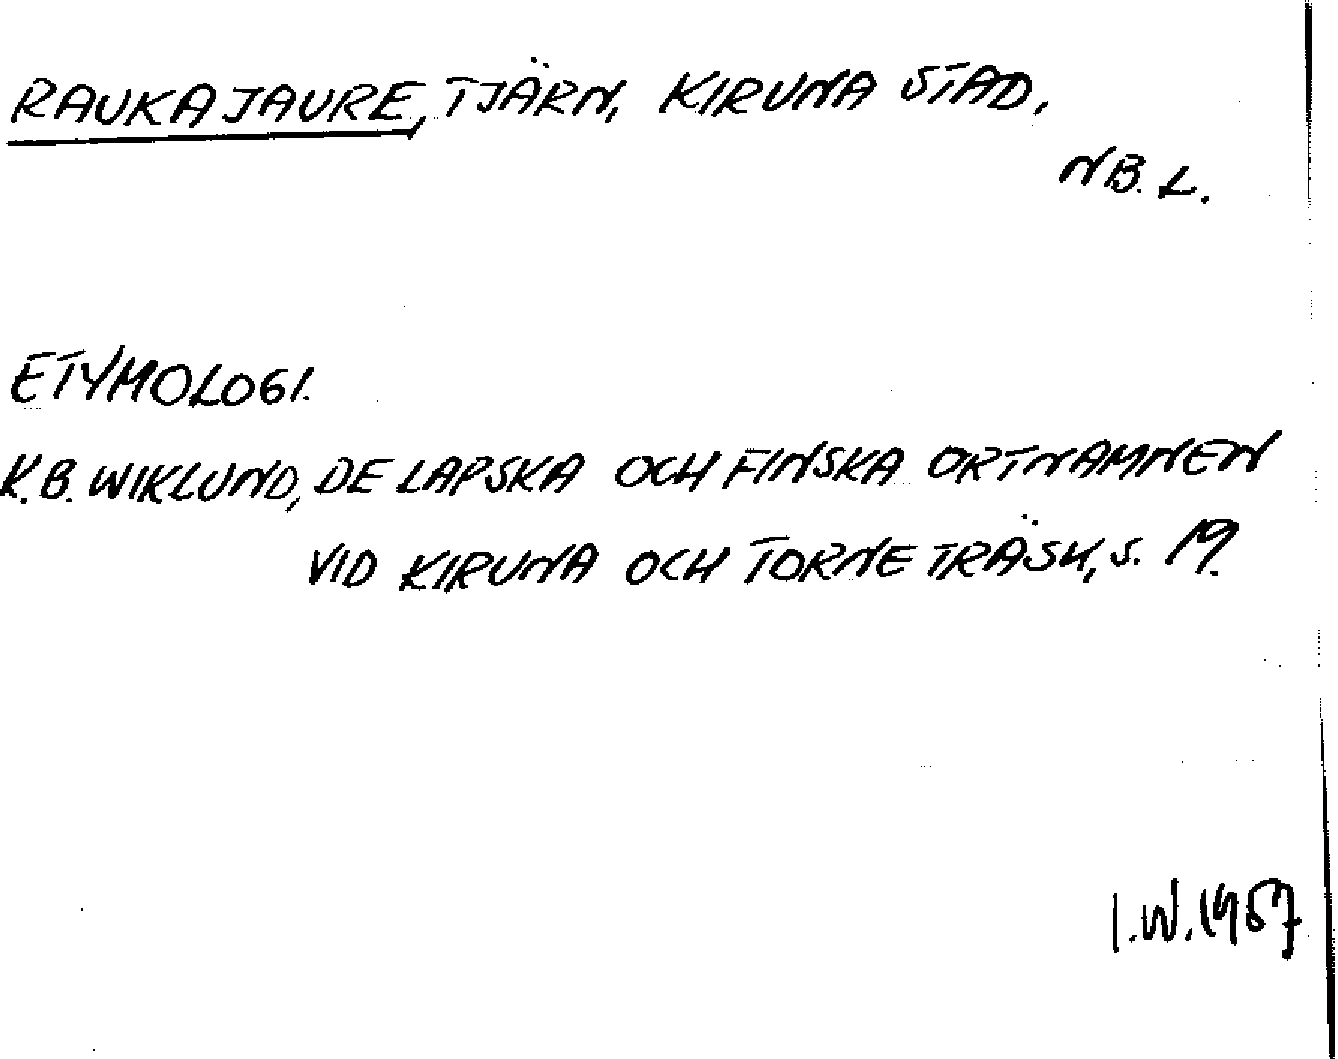 RAUKAJAURE, TJÄRN, KIRUNA STAD,
NB. L.
ETYMOLOGI.
K.B. WIKLUND, DE LAPSKA OCH FINSKA ORTNAMNEN
VID KIRUNA OCH TORNE TRÄSK, S. 19.
I.W. 1967